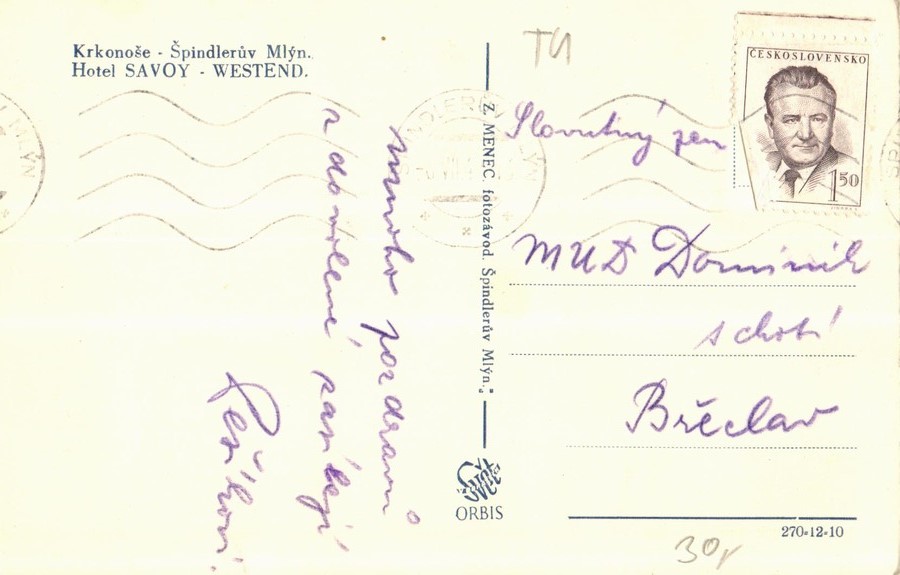 Krkonoše - Špindlerův Mlýn.
Hotel SAVOY - WESTEND.
mnoho pozdravů
z dovolené
Z. MENEC, fotozávod. Špindlerův Mlýn.
ORBIS
T4
ČESKOSLOVENSKO
1 50
Slovutný pan
MUD Dominik
s chotí
Břeclav
270-12-10
30,